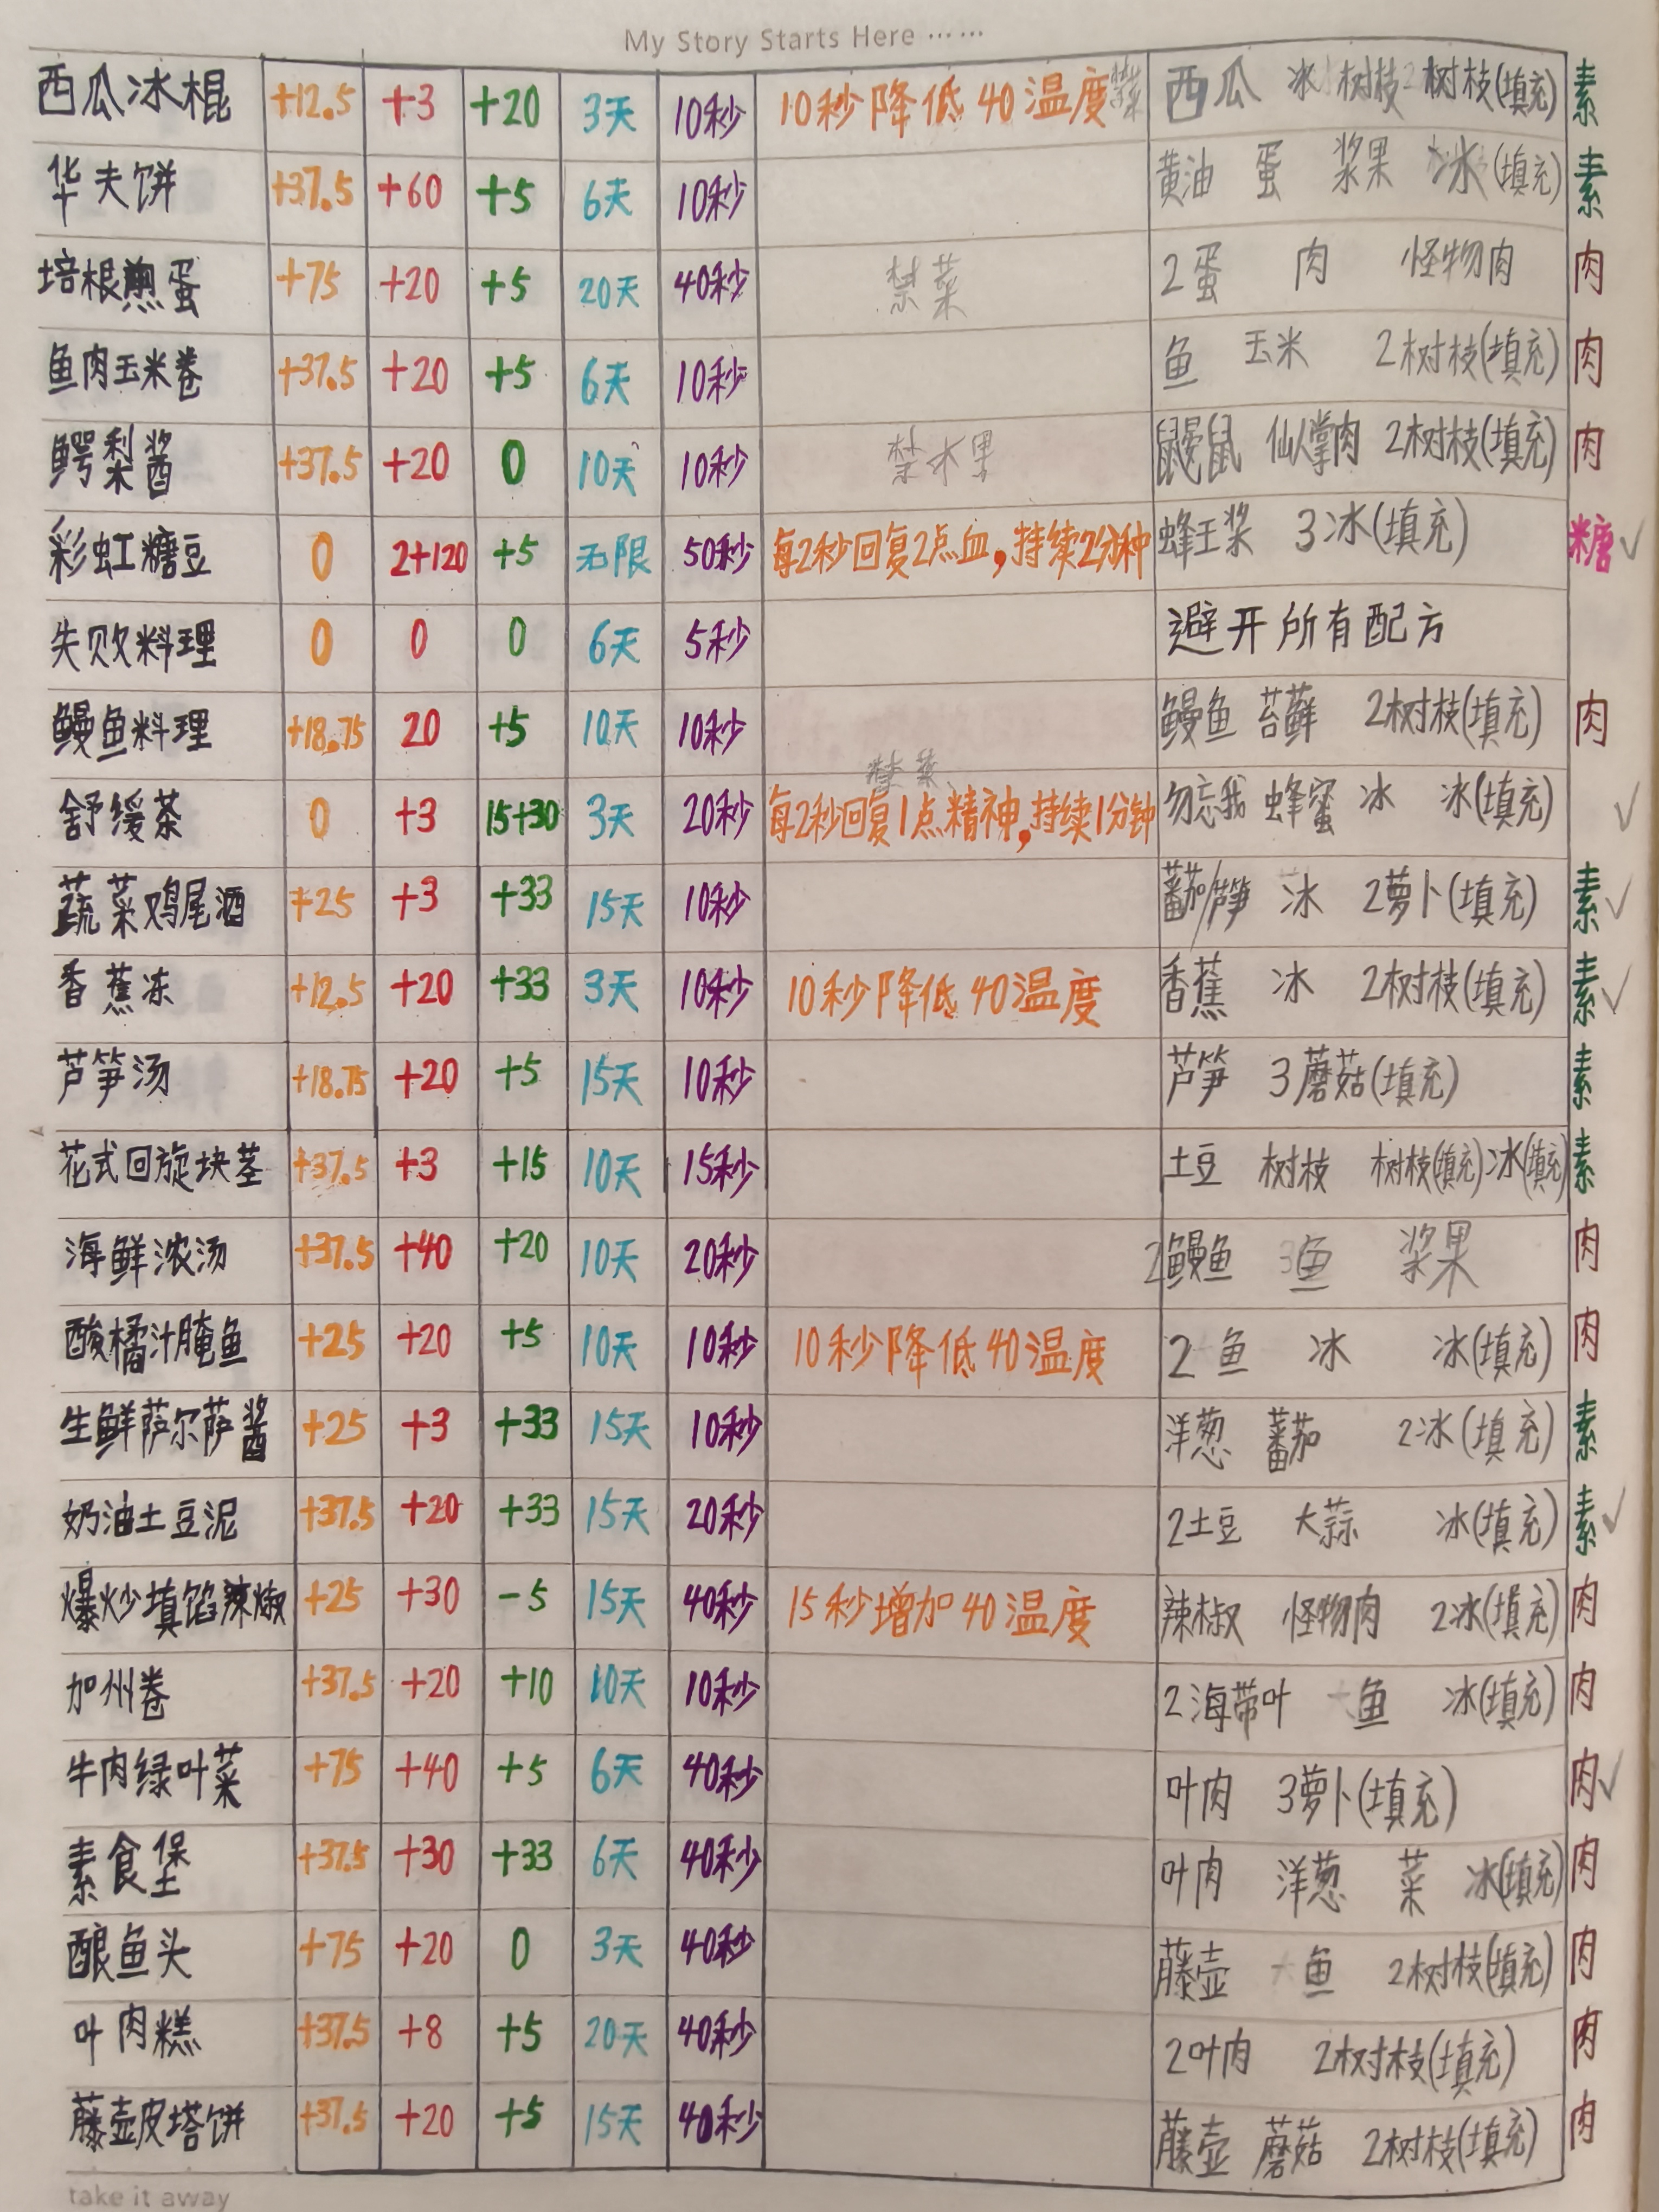 My Story Starts Here ……
西瓜冰棍 +12.5 +3 +20 3天 10秒 10秒降低40温度 禁菜 西瓜 冰 树枝 树枝(填充) 素
华夫饼 +37.5 +60 +5 6天 10秒 黄油 蛋 浆果 冰(填充) 素
培根煎蛋 +75 +20 +5 20天 40秒 禁菜 2蛋 肉 怪物肉 肉
鱼肉玉米卷 +37.5 +20 +5 6天 10秒 鱼 玉米 2树枝(填充) 肉
鳄梨酱 +37.5 +20 0 10天 10秒 禁水果 鼹鼠 仙人掌肉 2树枝(填充) 肉
彩虹糖豆 0 2+120 +5 无限 50秒 每2秒回复2点血，持续2分种 蜂王浆 3冰(填充) 糖 ✓
失败料理 0 0 0 6天 5秒 避开所有配方
鳗鱼料理 +18.75 20 +5 10天 10秒 鳗鱼 苔藓 2树枝(填充) 肉
舒缓茶 0 +3 15+30 3天 20秒 禁菜 每2秒回复1点精神，持续1分钟 勿忘我 蜂蜜 冰 冰(填充) ✓
蔬菜鸡尾酒 +25 +3 +33 15天 10秒 蕃茄/芦笋 冰 2萝卜(填充) 素 ✓
香蕉冻 +12.5 +20 +33 3天 10秒 10秒降低40温度 香蕉 冰 2树枝(填充) 素 ✓
芦笋汤 +18.75 +20 +5 15天 10秒 芦笋 3蘑菇(填充) 素
花式回旋块茎 +37.5 +3 +15 10天 15秒 土豆 树枝 树枝(填充) 冰(填充) 素
海鲜浓汤 +37.5 +40 +20 10天 20秒 2鳗鱼 鱼 浆果 肉
酸橘汁腌鱼 +25 +20 +5 10天 10秒 10秒降低40温度 2鱼 冰 冰(填充) 肉
生鲜萨尔萨酱 +25 +3 +33 15天 10秒 洋葱 蕃茄 2冰(填充) 素
奶油土豆泥 +37.5 +20 +33 15天 20秒 2土豆 大蒜 冰(填充) 素 ✓
爆炒填馅辣椒 +25 +30 -5 15天 40秒 15秒增加40温度 辣椒 怪物肉 2冰(填充) 肉
加州卷 +37.5 +20 +10 10天 10秒 2海带叶 鱼 冰(填充) 肉
牛肉绿叶菜 +75 +40 +5 6天 40秒 叶肉 3萝卜(填充) 肉 ✓
素食堡 +37.5 +30 +33 6天 40秒 叶肉 洋葱 菜 冰(填充) 肉
酿鱼头 +75 +20 0 3天 40秒 藤壶 鱼 2树枝(填充) 肉
叶肉糕 +37.5 +8 +5 20天 40秒 2叶肉 2树枝(填充) 肉
藤壶皮塔饼 +37.5 +20 +5 15天 40秒 藤壶 蘑菇 2树枝(填充) 肉
take it away